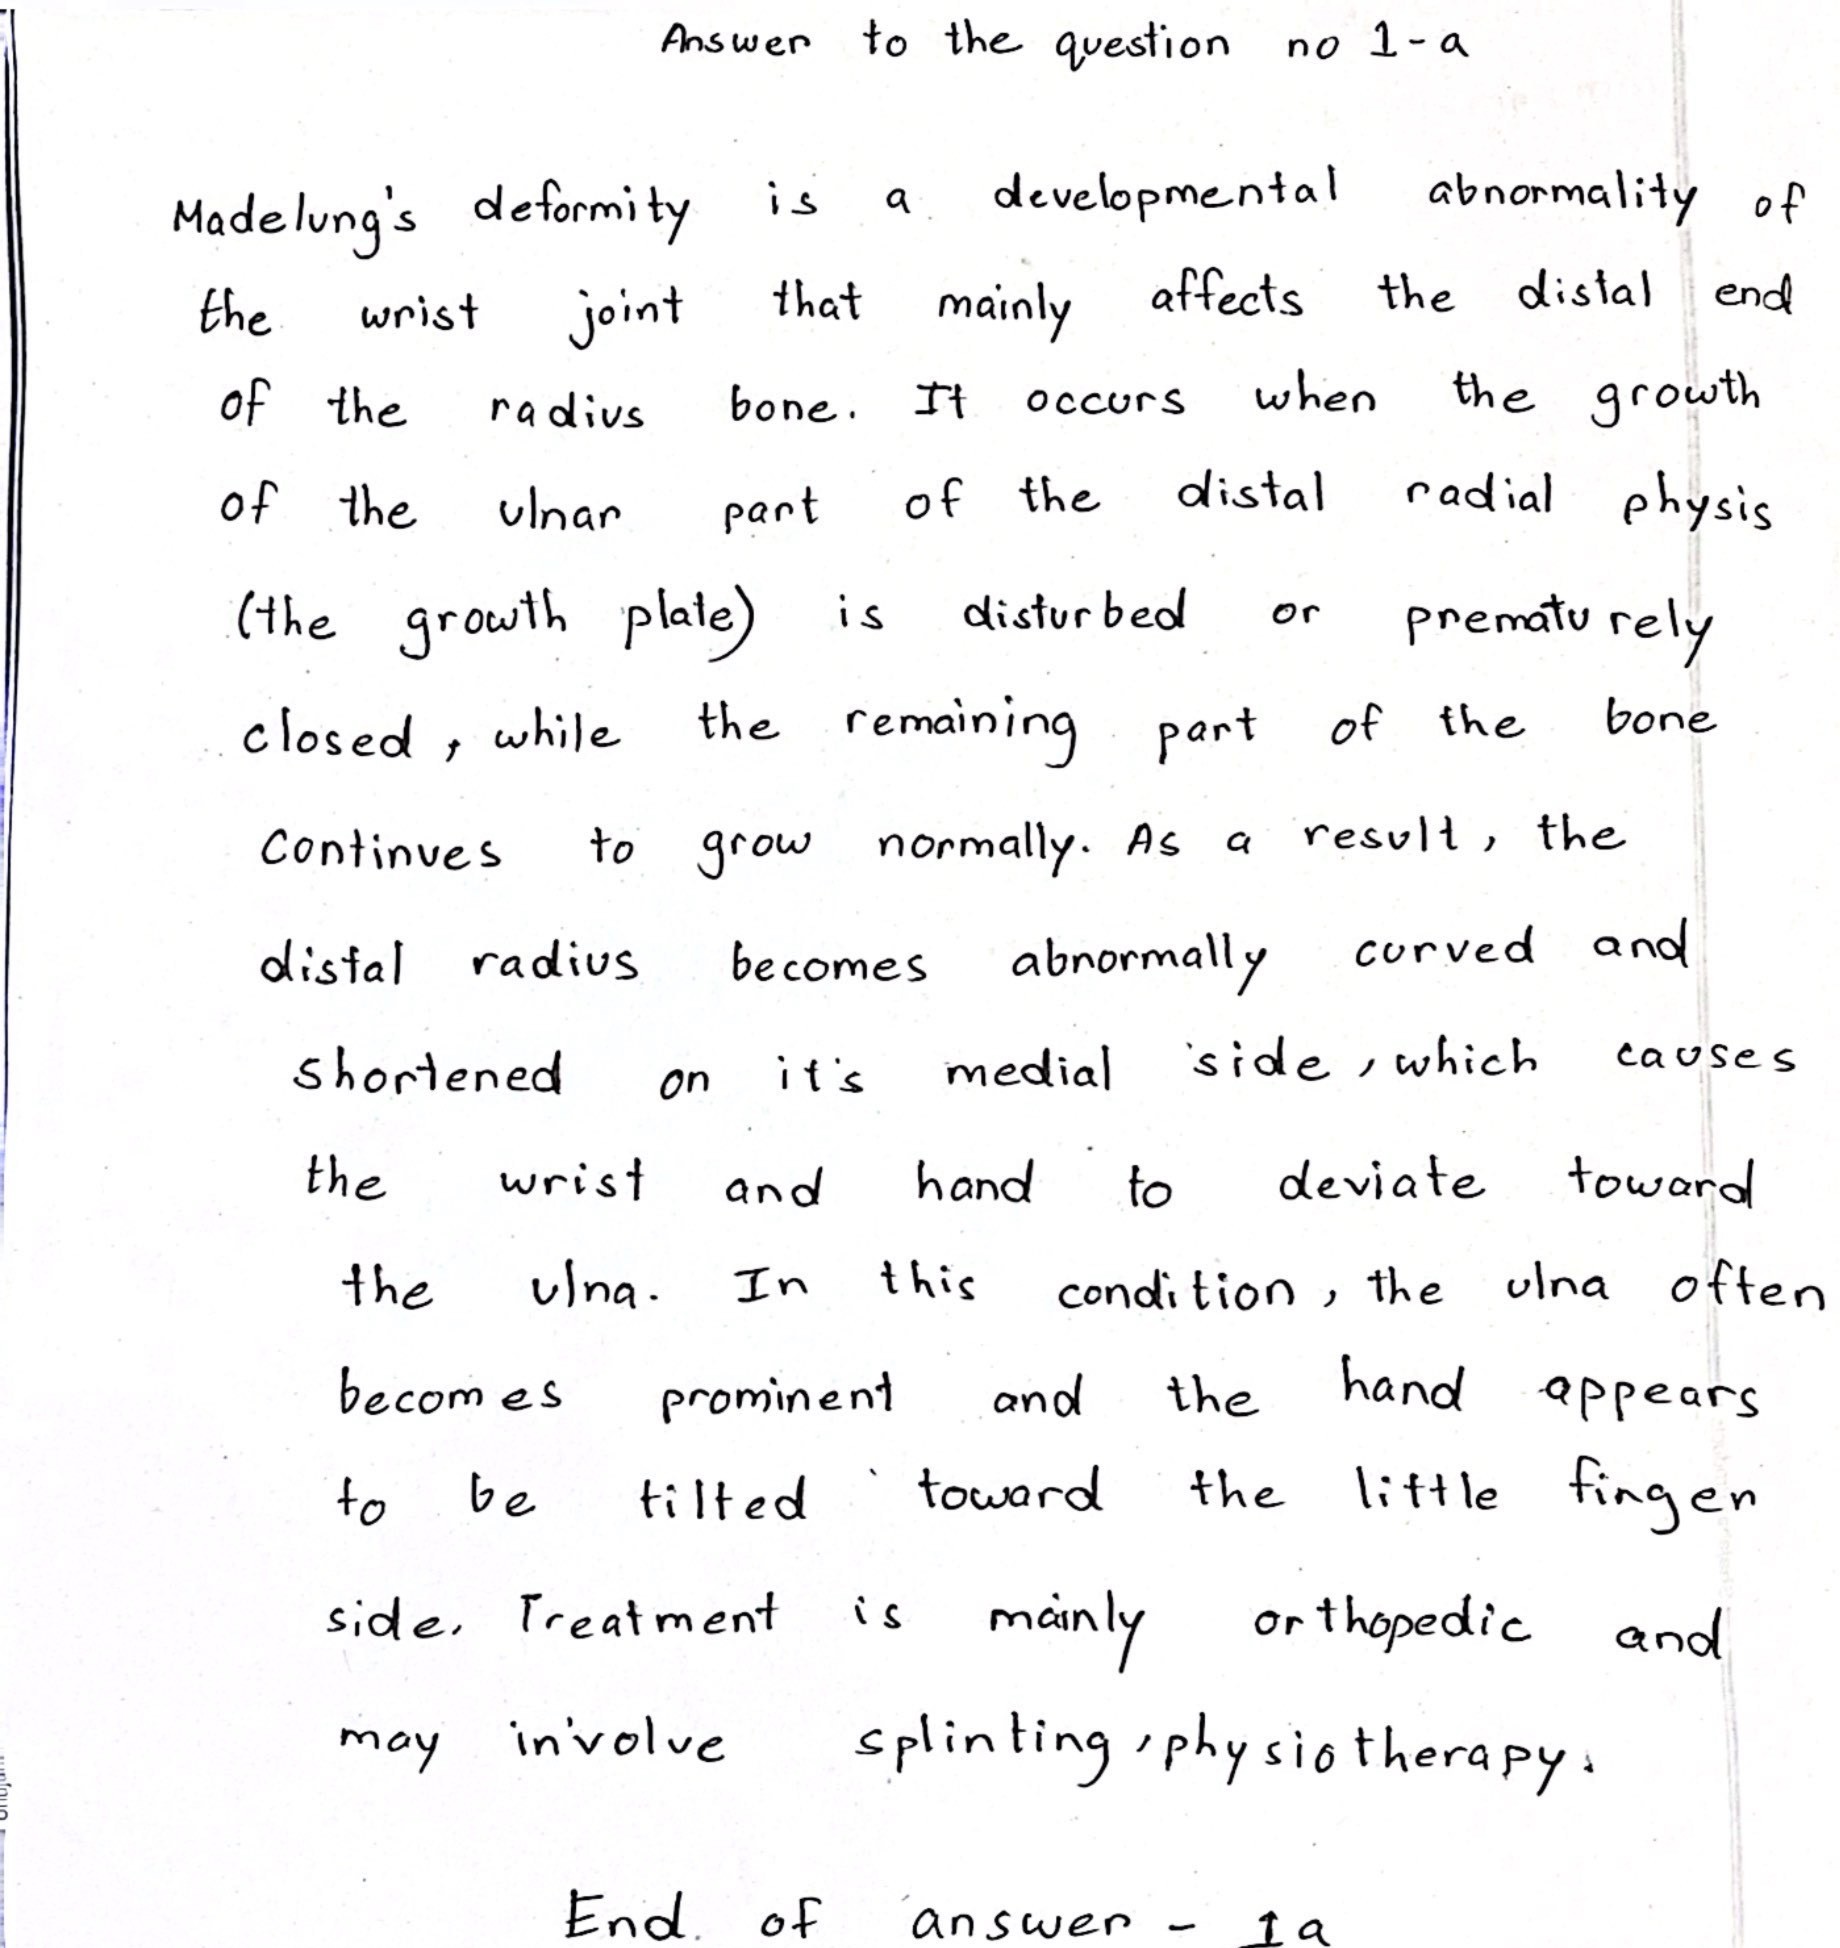 Answer to the question no 1-a
Madelung's deformity is a developmental abnormality of
the wrist joint that mainly affects the distal end
of the radius bone. It occurs when the growth
of the ulnar part of the distal radial physis
(the growth plate) is disturbed or prematurely
closed, while the remaining part of the bone
continues to grow normally. As a result, the
distal radius becomes abnormally curved and
shortened on it's medial side, which causes
the wrist and hand to deviate toward
the ulna. In this condition, the ulna often
becomes prominent and the hand appears
to be tilted toward the little finger
side. Treatment is mainly orthopedic and
may involve splinting, physiotherapy.
End of answer - 1a